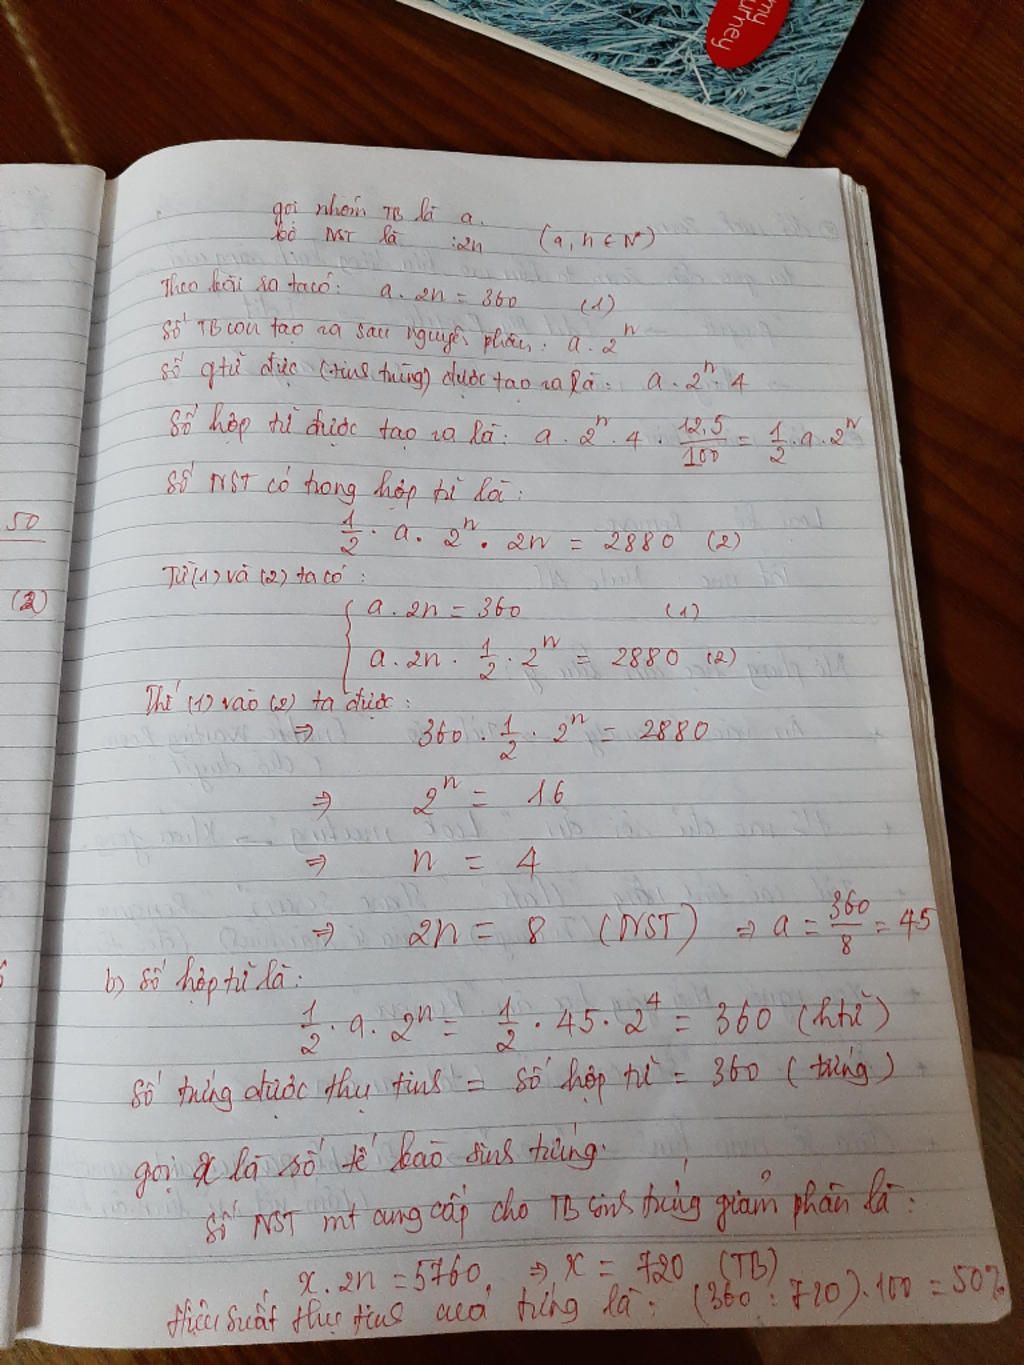 my
urney
gọi nhóm TB là a.
bộ NST là :2n (a, n ∈ N*)
Theo bài ra ta có: a . 2n = 360 (1)
Số TB con tạo ra sau nguyên phân: a . 2^n
Số gtử đực (tinh trùng) được tạo ra là: a . 2^n . 4
Số hợp tử được tạo ra là: a . 2^n . 4 . 12,5/100 = 1/2 . a . 2^n
Số NST có trong hợp tử là:
1/2 . a . 2^n . 2n = 2880 (2)
Từ (1) và (2) ta có :
{ a . 2n = 360 (1)
a . 2n . 1/2 . 2^n = 2880 (2)
Thế (1) vào (2) ta được :
⇒ 360 . 1/2 . 2^n = 2880
⇒ 2^n = 16
⇒ n = 4
⇒ 2n = 8 (NST) ⇒ a = 360/8 = 45
b) Số hợp tử là:
1/2 . a . 2^n = 1/2 . 45 . 2^4 = 360 (htử)
Số trứng được thụ tinh = số hợp tử = 360 (trứng)
gọi x là số tế bào sinh trứng.
Số NST mt cung cấp cho TB sinh trứng giảm phân là :
x . 2n = 5760 ⇒ x = 720 (TB)
Hiệu suất thụ tinh của trứng là : (360 : 720) . 100 = 50%
50
(2)